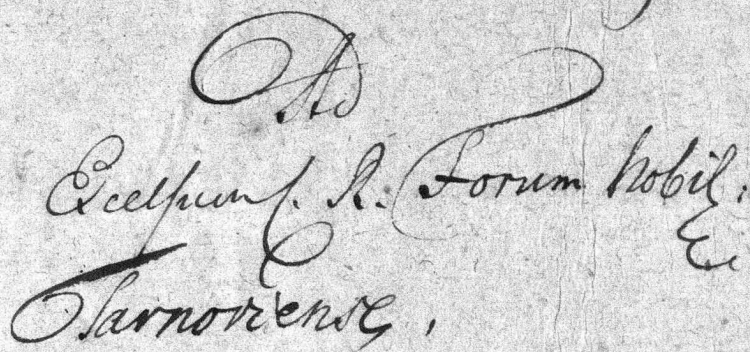 Ad
Excelsum C. R. Forum Nobil:
Tarnoviense,